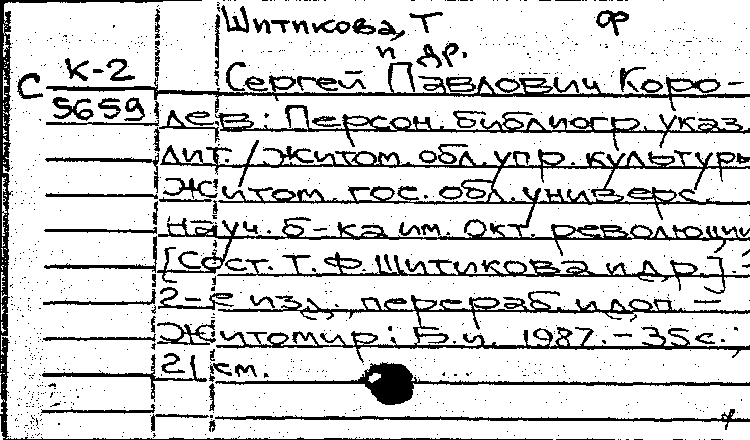 Шитикова, Т ф
и др.
С К-2 Сергей Павлович Коро-
5659 лев: Персон. библиогр. указ.
лит. / Житом. обл. упр. культуры
Житом. гос. обл. универс.
науч. б-ка им. Окт. революции
[Сост. Т. Ф. Шитикова и др.] -
2-е изд., перераб. и доп. -
Житомир: Б. и. 1987. - 35 с.;
21 см.